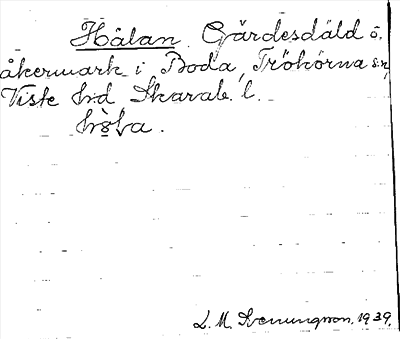 Hålan. Gärdesdäld o.
åkermark i Boda, Trökörna sn,
Viste hd, Skarab. l.
L. M. Svenungsson. 1939.